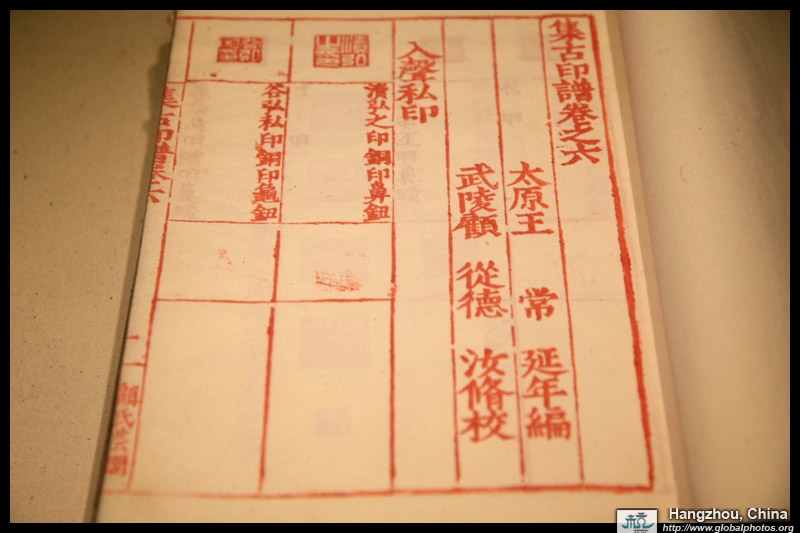 集古印譜卷之六
太原王 常 延年編
武陵顧 從德 汝脩校
入聲私印
弘之印銅印鼻鈕
谷弘私印銅印龜鈕
集古印譜卷之六
顧氏芸閣
Hangzhou, China
http://www.globalphotos.org